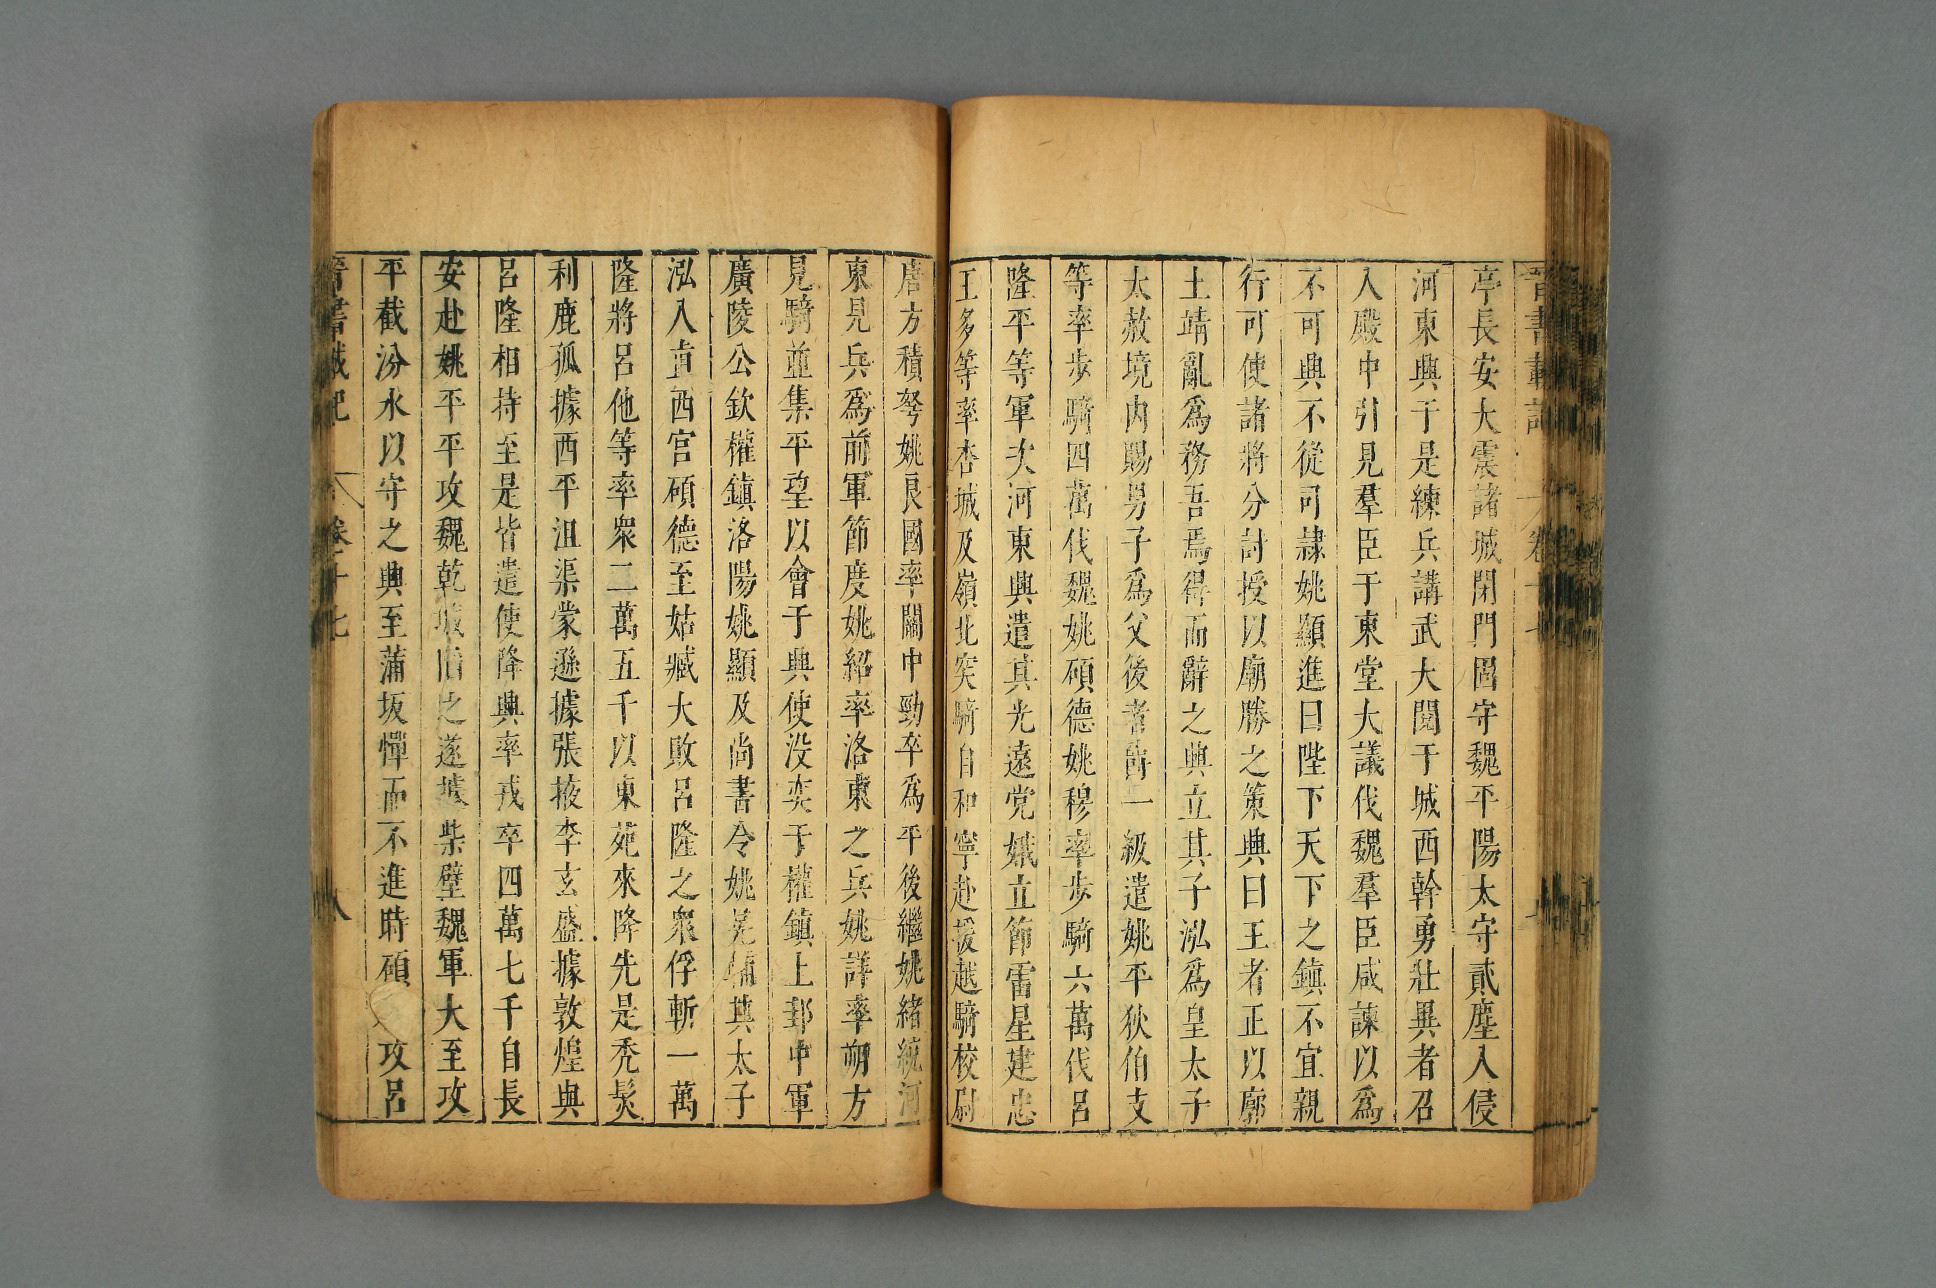 晉書載記 卷十七
亭長安大震諸城閉門固守魏平陽太守貳塵入侵
河東興于是練兵講武大閱于城西幹勇壯異者召
入殿中引見羣臣于東堂大議伐魏羣臣咸諫以爲
不可興不從司隷姚顯進曰陛下天下之鎮不宜親
行可使諸將分討授以廟勝之策興曰王者正以廓
土靖亂爲務吾焉得而辭之興立其子泓爲皇太子
大赦境内賜男子爲父後者爵一級遣姚平狄伯支
等率步騎四萬伐魏姚碩德姚穆率步騎六萬伐呂
隆平等軍次河東興遣其光遠党娥立節雷星建忠
王多等率杏城及嶺北突騎自和寧赴援越騎校尉
唐方積弩姚良國率關中勁卒爲平後繼姚緒統河
東見兵爲前軍節度姚紹率洛東之兵姚詳率朔方
見騎並集平望以會于興使没奕于權鎮上邽中軍
廣陵公欽權鎮洛陽姚顯及尚書令姚晃輔其太子
泓入直西宮碩德至姑臧大敗呂隆之衆俘斬一萬
隆將呂他等率衆二萬五千以東苑來降先是禿髮
利鹿孤據西平沮渠蒙遜據張掖李玄盛據敦煌與
呂隆相持至是皆遣使降興率戎卒四萬七千自長
安赴姚平平攻魏乾城陷之遂據柴壁魏軍大至攻
平截汾水以守之興至蒲坂憚而不進時碩攻呂
晉書載記 卷十七 八